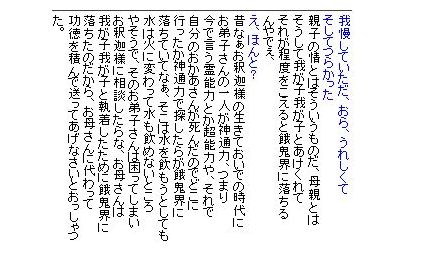 我慢していただ、おら、うれしくて
そしてつらかった
親子の情とはそういうものだ、母親とは
そうして我が子我が子とあけくれて
それが程度をこえると餓鬼界に落ちる
んやでえ、
え、ほんと？
昔なぁお釈迦様の生きておいでの時代に
お弟子さんの一人が神通力、つまり
今で言う霊能力とか超能力や、それで
自分のおかあさんが死んだのでどこに
行ったか神通力で探したらが餓鬼界に
落ちていてなぁ、そこは水を飲もうとしても
水は火に変わって水も飲めないところ
やそうで、そのお弟子さんは困ってしまい
お釈迦様に相談したらな、お母さんは
我が子我が子と執着したために餓鬼界に
落ちたのだから、お母さんに代わって
功徳を積んで送ってあげなさいとおっしゃっ
た。